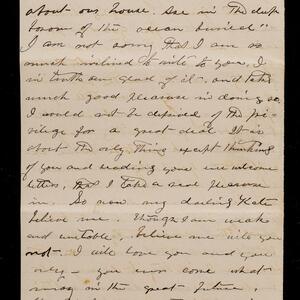 about our house. are in the deep
bosom of the ocean buried"
I am not sorry that I am so
much inclined to write to you, I
in truth am glad of it - and take
much good pleasure in doing so
I would not be deprived of the pri-
vilege for a great deal It is
about the only thing except thinking
of you and reading your welcome
letters, that I take a real pleasure
in. So now my darling Kate
believe me. though I am weak
and unstable, believe me will you
not. I will love you and you
only - you come what
may in the great future.